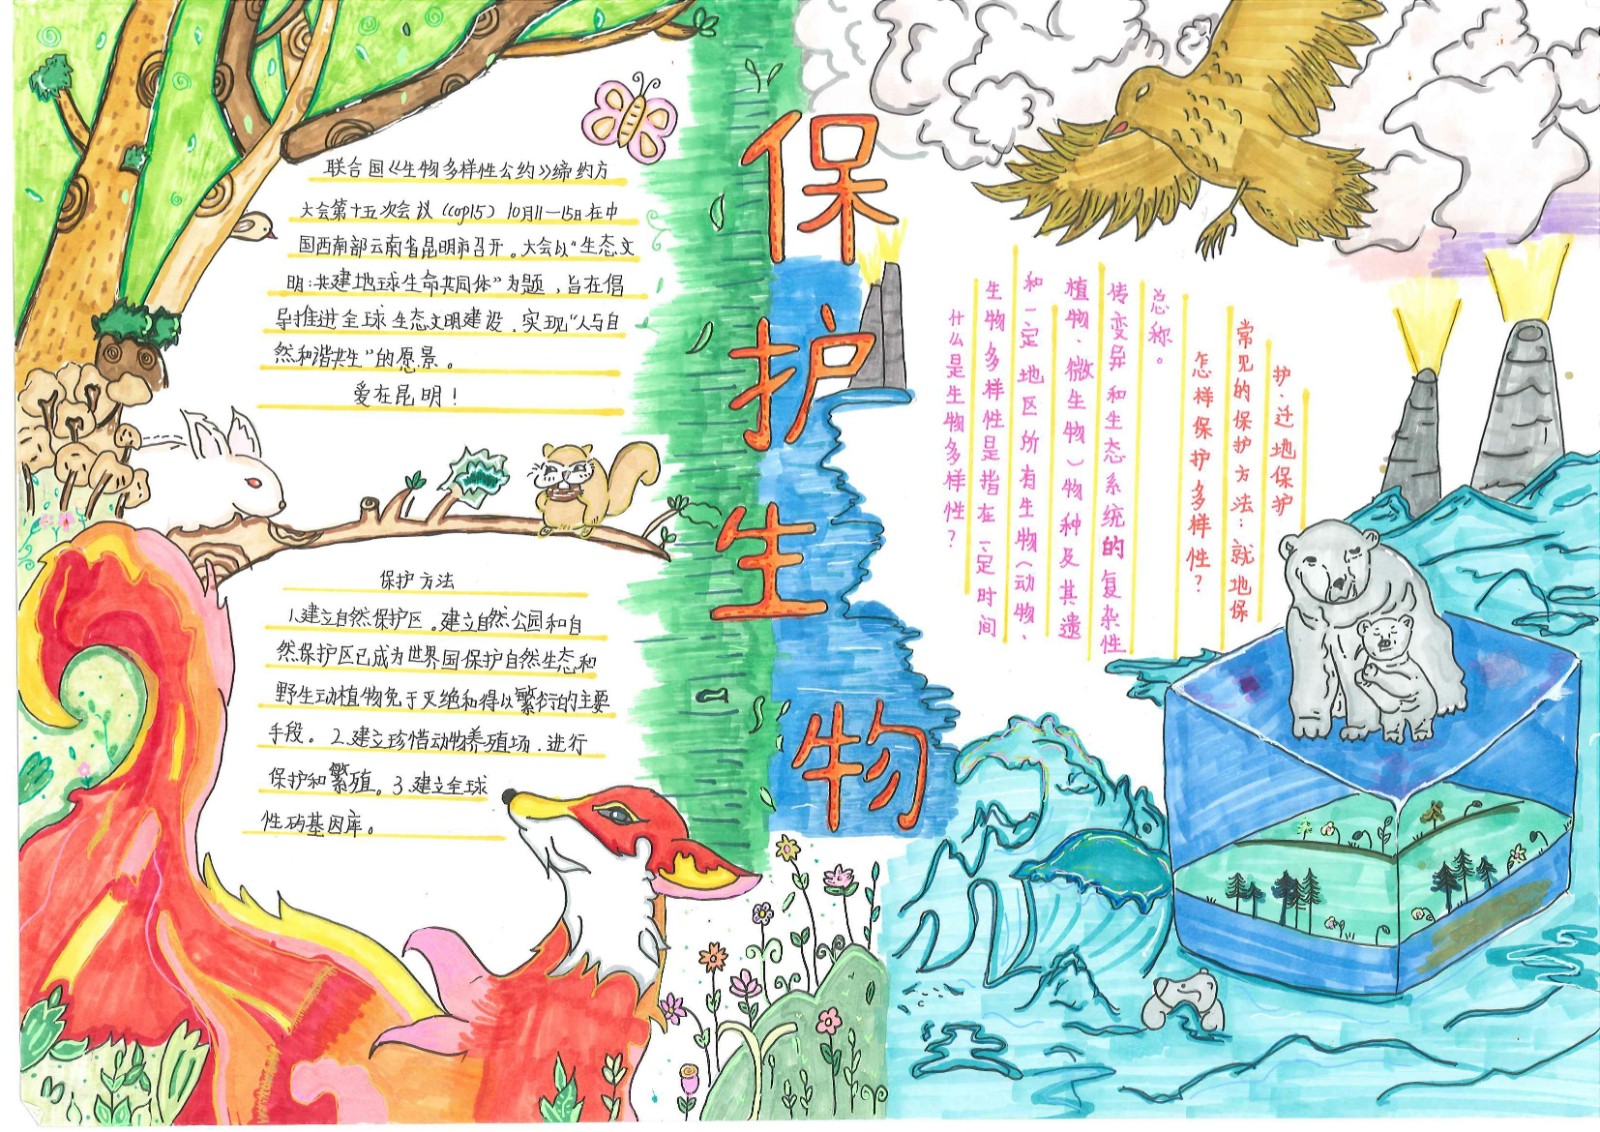 保护生物
联合国《生物多样性公约》缔约方
大会第十五次会议（cop15）10月11—15日在中
国西南部云南省昆明市召开。大会以“生态文
明：共建地球生命共同体”为题，旨在倡
导推进全球生态文明建设，实现“人与自
然和谐共生”的愿景。
爱在昆明！
保护方法
1.建立自然保护区。建立自然公园和自
然保护区已成为世界国保护自然生态和
野生动植物免于灭绝和得以繁衍的主要
手段。2.建立珍惜动物养殖场.进行
保护和繁殖。3.建立全球
性的基因库。
什么是生物多样性？
生物多样性是指在一定时间
和一定地区所有生物（动物、
植物、微生物）物种及其遗
传变异和生态系统的复杂性
总称。
怎样保护多样性？
常见的保护方法：就地保
护、迁地保护